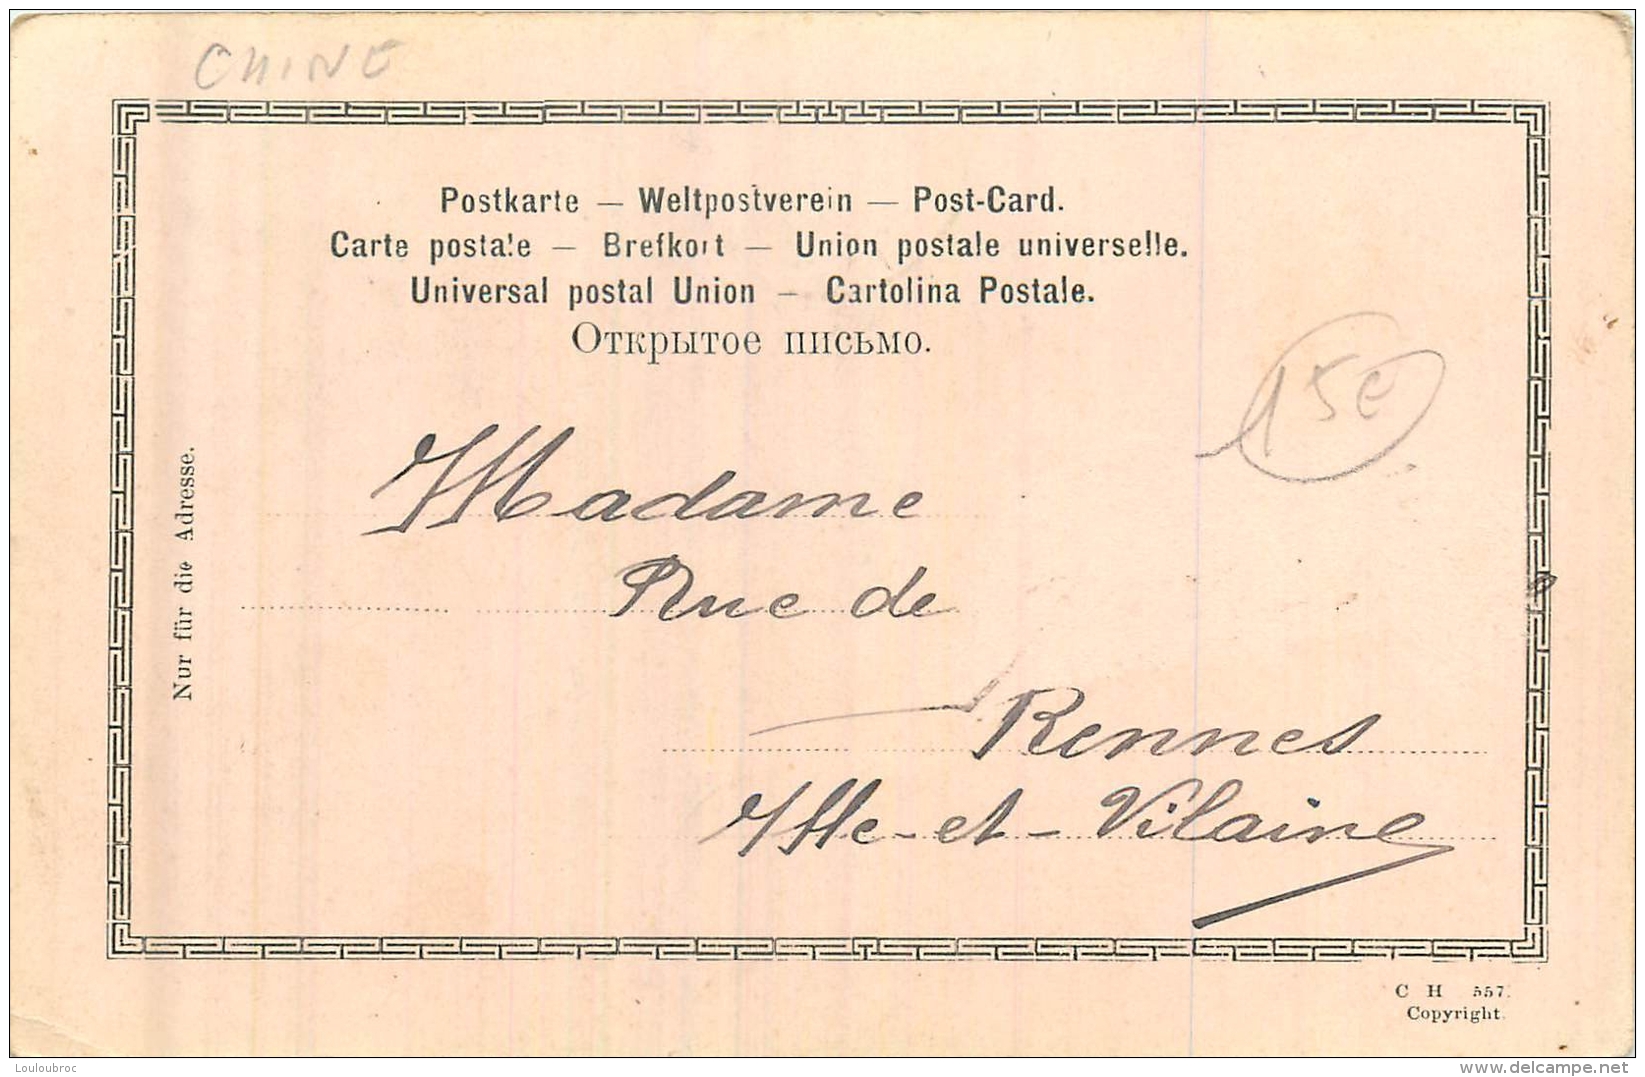 CHINE
Postkarte — Weltpostverein — Post-Card.
Carte postale — Brefkort — Union postale universelle.
Universal postal Union — Cartolina Postale.
Открытое письмо.
15€
Nur für die Adresse.
Madame
Rue de
Rennes
Ille-et-Vilaine
C H 557.
Copyright.
Louloubroc
delcampe.net